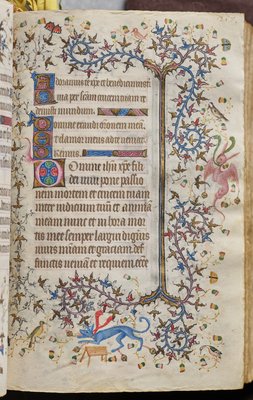 Adoramus te xpe et benedicimus ti
quia per scam crucem tuam re
demisti mundum.
Domine exaudi orationem meā.
Et clamor meus ad te veniat.
Oremus.
Domine ihu xpe fili
dei vivi pone passio
nem mortem et crucem tuam
inter iudicium tuū et animā
meam nunc et in hora mor
tis mee semper largiri digneris
vivis miam et gratiam def
functis veniā et requiem ecce